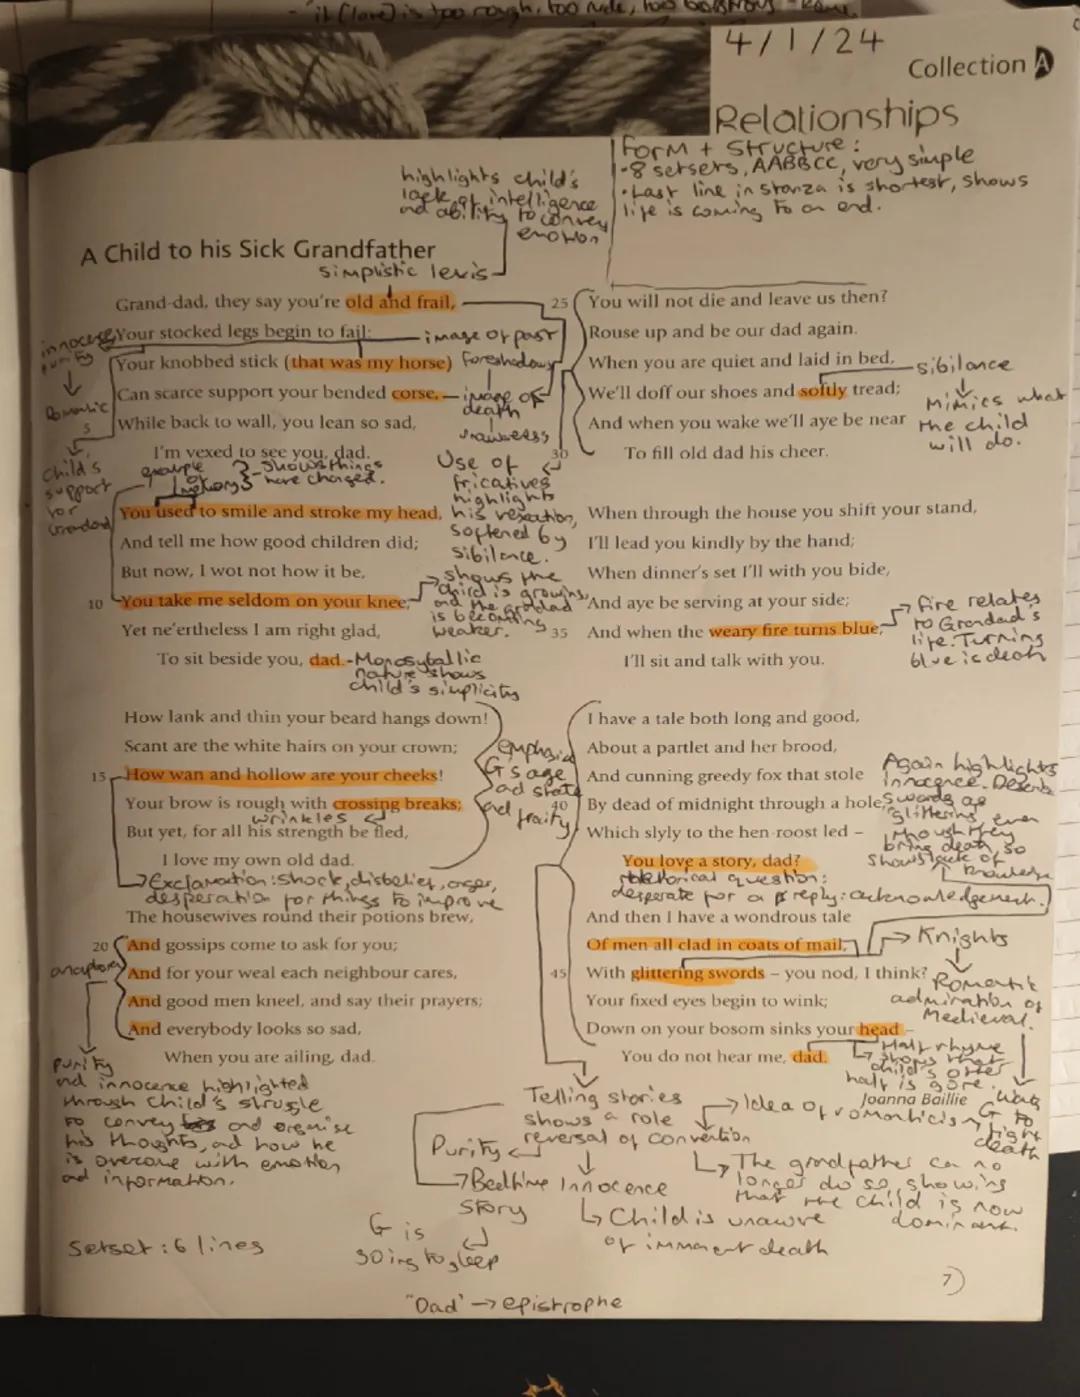 "it (love) is too rough, too rude, too boisterous" - Romeo
4/1/24
Collection A
Relationships
Form + Structure:
·8 setsets, AABBCC, very simple
·Last line in stanza is shortest, shows
life is coming to an end.
highlights child's
lack of intelligence
and ability to convey
emotion
A Child to his Sick Grandfather
simplistic lexis
Grand-dad, they say you're old and frail,
Your stocked legs begin to fail:
Your knobbed stick (that was my horse)
Can scarce support your bended corse,
While back to wall, you lean so sad,
I'm vexed to see you, dad.
image of past
foreshadows
image of
death
unawareness
innocence
purity
Romantics
Child's
support
for
Grandad
example
of
memory
- shows things
have changed.
You used to smile and stroke my head,
And tell me how good children did;
But now, I wot not how it be,
10 You take me seldom on your knee;
Yet ne'ertheless I am right glad,
To sit beside you, dad.
Use of
fricatives
highlights
his vexation,
softened by
sibilance.
shows the
child is growing,
and the grandad
is becoming
weaker.
-Monosyballic
nature shows
child's simplicity
How lank and thin your beard hangs down!
Scant are the white hairs on your crown;
15 How wan and hollow are your cheeks!
Your brow is rough with crossing breaks;
wrinkles
But yet, for all his strength be fled,
I love my own old dad.
emphasis
G's age
and state
and fraity
Exclamation: shock, disbelief, anger,
desperation for things to improve
The housewives round their potions brew,
20 And gossips come to ask for you;
And for your weal each neighbour cares,
And good men kneel, and say their prayers;
And everybody looks so sad,
When you are ailing, dad.
anaphora
purity
and innocence highlighted
through child's struggle
to convey and organise
his thoughts, and how he
is overcome with emotion
and information.
Setset: 6 lines
25 You will not die and leave us then?
Rouse up and be our dad again.
When you are quiet and laid in bed,
We'll doff our shoes and softly tread;
And when you wake we'll aye be near
30 To fill old dad his cheer.
sibilance
Mimics what
the child
will do.
When through the house you shift your stand,
I'll lead you kindly by the hand;
When dinner's set I'll with you bide,
And aye be serving at your side;
35 And when the weary fire turns blue,
I'll sit and talk with you.
fire relates
to Grandad's
life. Turning
blue is death
I have a tale both long and good,
About a partlet and her brood,
And cunning greedy fox that stole
40 By dead of midnight through a hole,
Which slyly to the hen-roost led –
You love a story, dad?
Again highlights
innocence. Describes
swords as
glittering, even
though they
bring death, so
shows lack of
knowledge
rhetorical question:
desperate for a reply: acknowledgement.
And then I have a wondrous tale
Of men all clad in coats of mail,
45 With glittering swords – you nod, I think?
Your fixed eyes begin to wink;
Down on your bosom sinks your head –
You do not hear me, dad.
Joanna Baillie
Knights
Romantic
admiration of
Medieval.
Half rhyme
shows that
child's other
half is gone.
Wants
G to
fight
death
Telling stories
shows a role
reversal of convention
Idea of romanticism
Purity
Bedtime
story
Innocence
G is
going to sleep
Child is unaware
of immanent death
The grandfather can no
longer do so, showing
that the child is now
dominant.
7
"Dad" → epistrophe